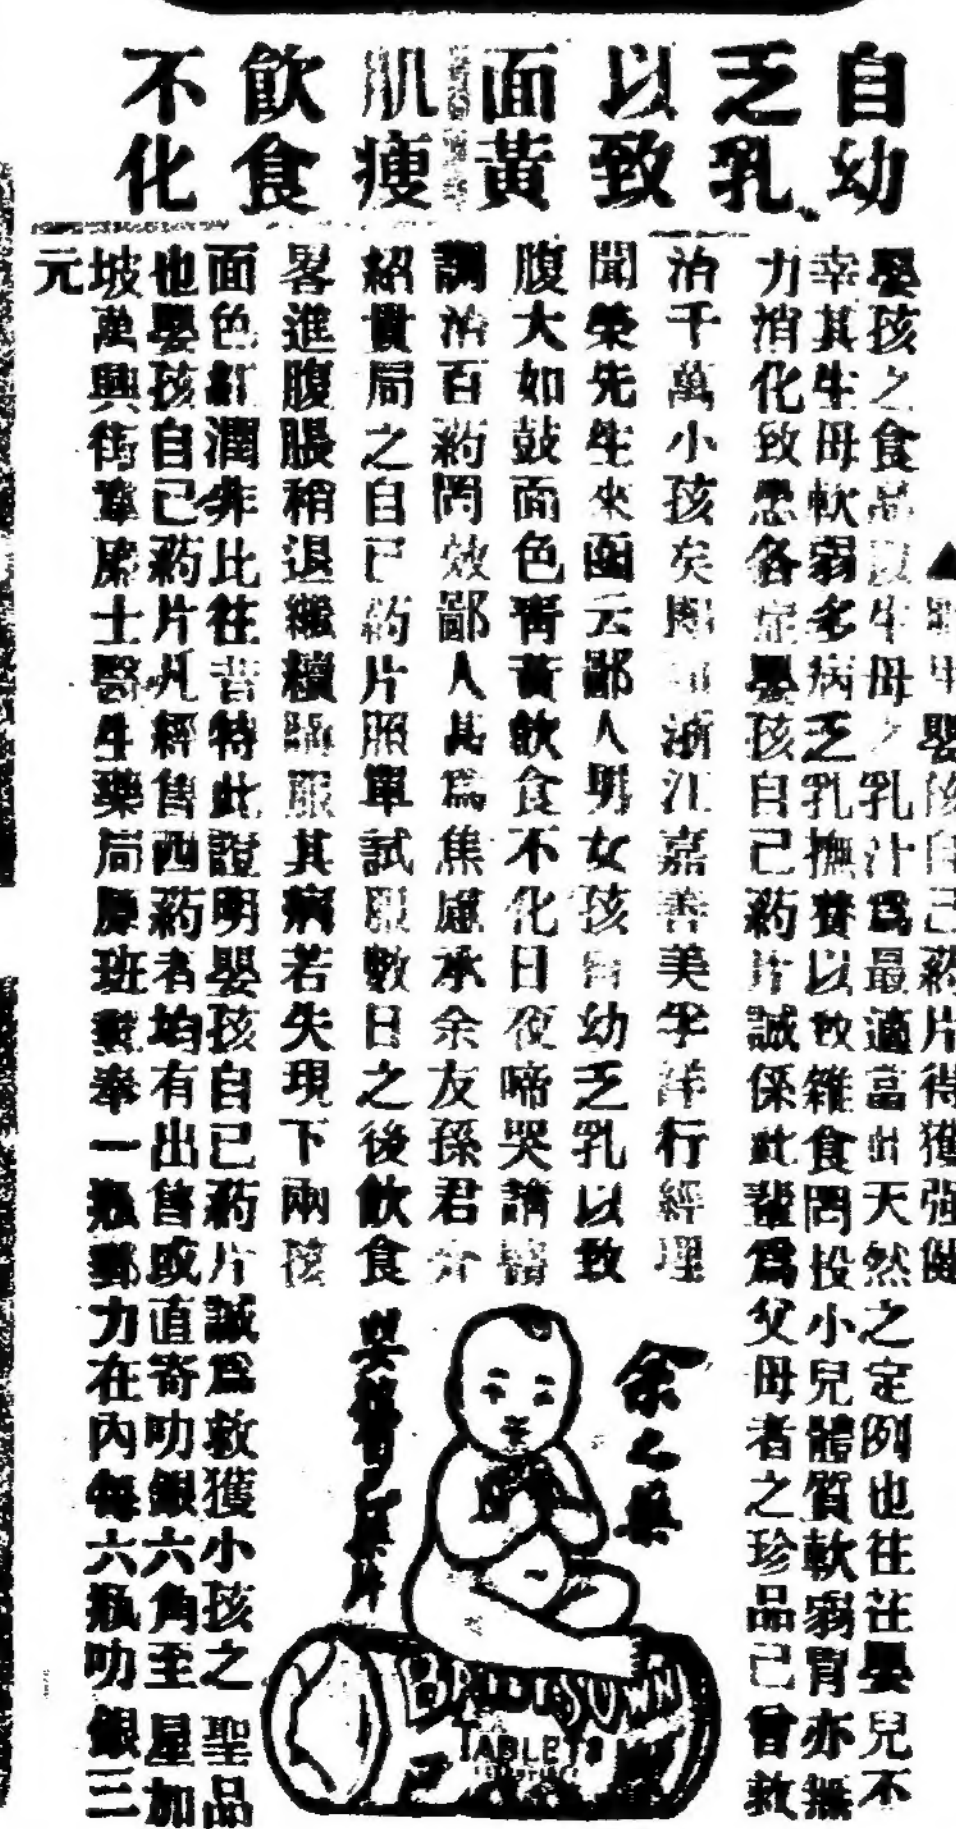 自幼
乏乳
以致
面黃
肌瘦
飲食
不化
嬰孩自己葯片得獲强健
嬰孩之食品 生母之乳汁爲最適當此天然之定例也往往嬰兒不
幸其生母軟弱多病乏乳撫養以致雜食罔投小兒體質軟弱胃亦無
力消化致患各症嬰孩自己葯片誠係此輩爲父母者之珍品已曾救
治千萬小孩矣 浙江嘉善美孚洋行經理
聞榮先生來函云鄙人男女孩自幼乏乳以致
腹大如鼓面色靑黃飲食不化日夜啼哭請醫
調治百葯罔效鄙人甚爲焦慮承余友孫君介
紹貴局之自已葯片照單試服數日之後飲食
畧進腹脹稍退繼續 服其病若失現下兩孩
面色紅潤非比往昔特此證明嬰孩自已葯片誠爲救獲小孩之聖品
也嬰孩自已葯片凡經售西葯者均有出售或直寄叻銀六角至星加
坡萬興街韋廉士醫生藥局原班 奉一瓶郵力在內每六瓶叻銀三
元
余之
嬰 藥片
BABY'S OWN
TABLETS